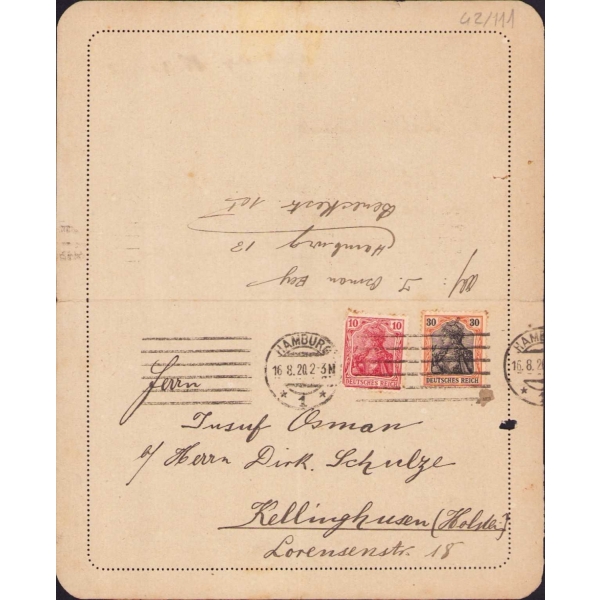 42/111
Abf: J. Osman Bey
Hamburg 13
Beneckestr
10 10
DEUTSCHES REICH
30 30
DEUTSCHES REICH
HAMBURG
16.8.20.2-3N
* 1 *
HAMBURG
16.8.20
* 1
Herrn
Jusuf Osman
b/ Herrn Dirk. Schulze
Kellinghusen (Holstein)
Lorensenstr. 18